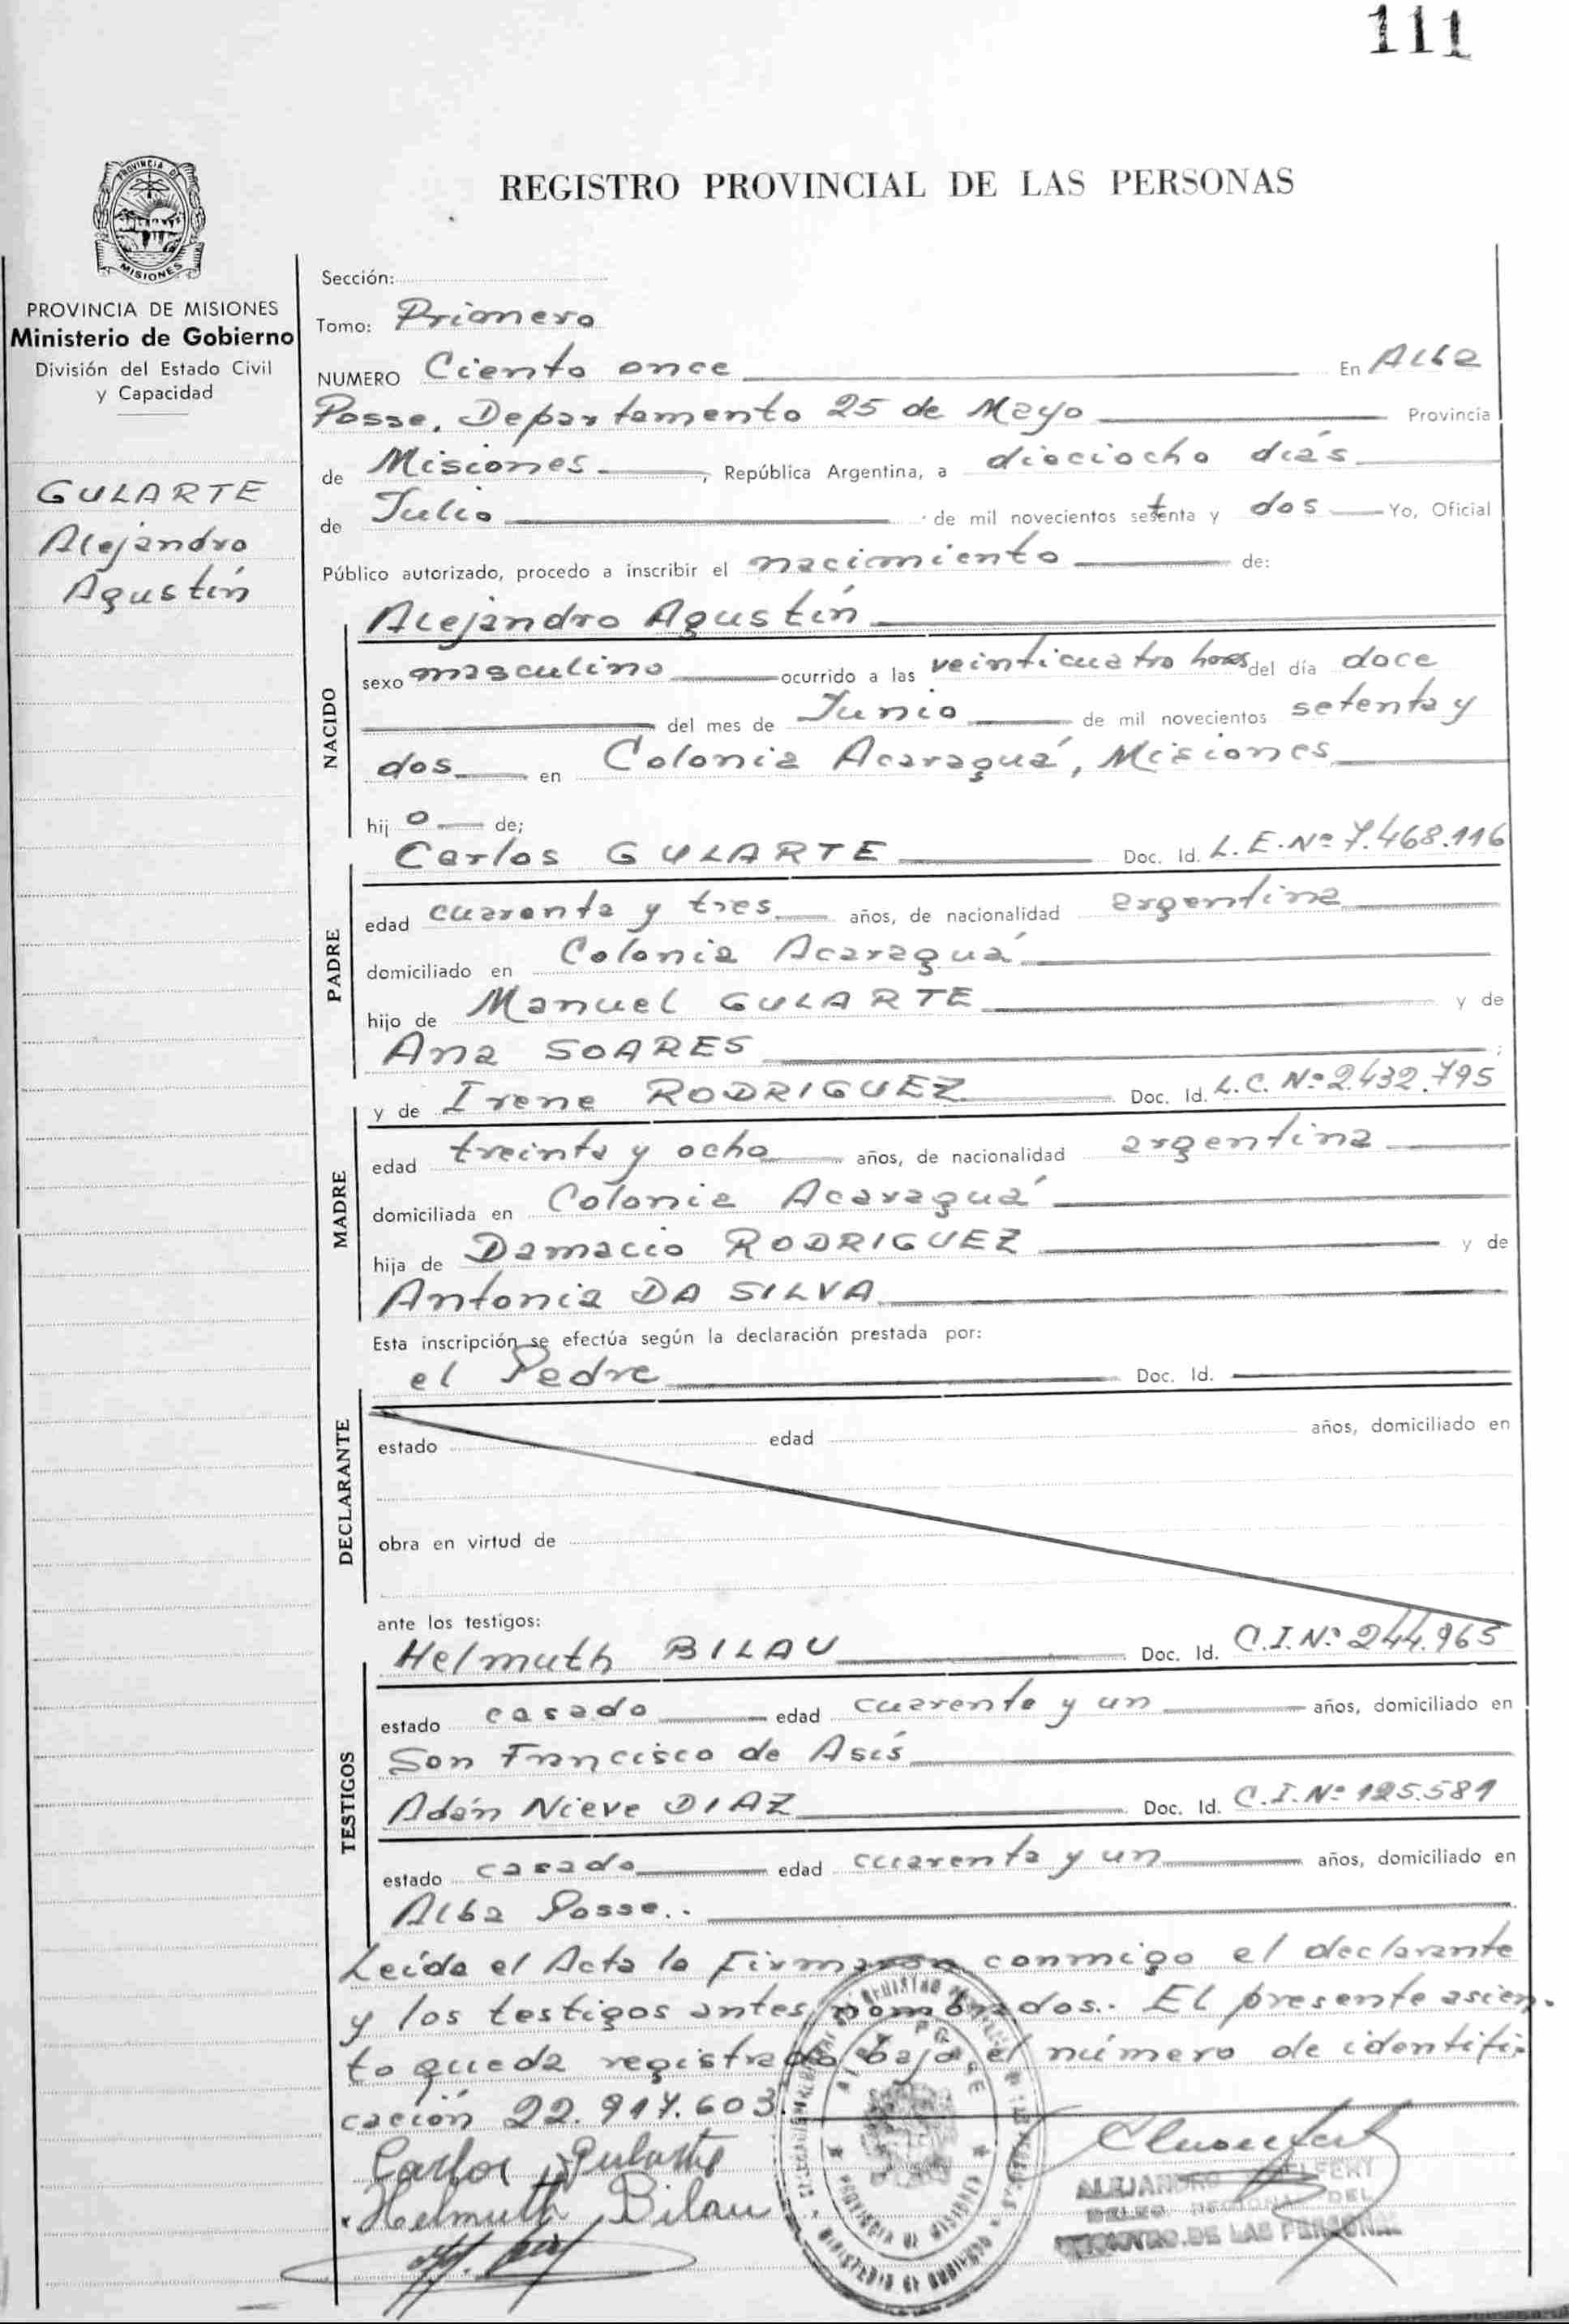 111
REGISTRO PROVINCIAL DE LAS PERSONAS
PROVINCIA DE
MISIONES
PROVINCIA DE MISIONES
Ministerio de Gobierno
División del Estado Civil
y Capacidad
GULARTE
Alejandro
Agustín
Sección:
Tomo: Primero
NUMERO Ciento once En Alba
Posse, Departamento 25 de Mayo Provincia
de Misiones, República Argentina, a dieciocho días
de Julio de mil novecientos setenta y dos Yo, Oficial
Público autorizado, procedo a inscribir el nacimiento de:
Alejandro Agustín
NACIDO
sexo masculino ocurrido a las veinticuatro horas del día doce
del mes de Junio de mil novecientos setenta y
dos en Colonia Acaraguá, Misiones
hijo de;
Carlos GULARTE Doc. Id. L.E.Nº 7.468.116
PADRE
edad cuarenta y tres años, de nacionalidad argentina
domiciliado en Colonia Acaraguá
hijo de Manuel GULARTE y de
Ana SOARES
y de Irene RODRIGUEZ Doc. Id. L.C. Nº 2.432.795
MADRE
edad treinta y ocho años, de nacionalidad argentina
domiciliada en Colonia Acaraguá
hija de Damacio RODRIGUEZ y de
Antonia DA SILVA
Esta inscripción se efectúa según la declaración prestada por:
el Padre Doc. Id.
DECLARANTE
estado edad años, domiciliado en
obra en virtud de
ante los testigos:
Helmuth BILAU Doc. Id. C.I.Nº 244.965
TESTIGOS
estado casado edad cuarenta y un años, domiciliado en
San Francisco de Asís
Adán Nieve DIAZ Doc. Id. C.I.Nº 125.581
estado casado edad cuarenta y un años, domiciliado en
Alba Posse..
Leída el Acta la Firmaron conmigo el declarante
y los testigos antes nombrados.. El presente asien-
to queda registrado bajo el número de identifi-
cación 22.917.603.
Carlos Gularte
Helmuth Bilau
ALBA POSSE
PROVINCIA DE MISIONES
ALEJANDRO
DEL
REGISTRO DE LAS PERSONAS